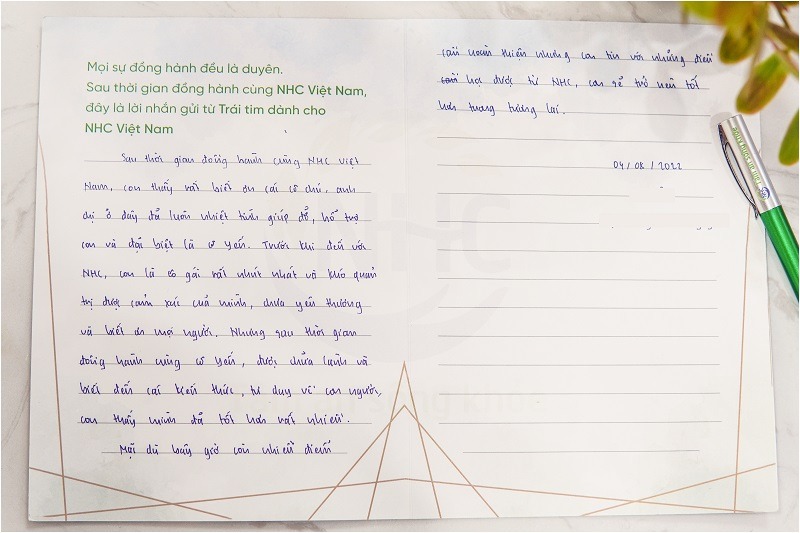 Mọi sự đồng hành đều là duyên.
Sau thời gian đồng hành cùng NHC Việt Nam,
đây là lời nhắn gửi từ Trái tim dành cho
NHC Việt Nam
Sau thời gian đồng hành cùng NHC Việt
Nam, con thấy rất biết ơn các cô chú, anh
chị ở đây đã luôn nhiệt tình giúp đỡ, hỗ trợ
con và đặc biệt là cô Yến. Trước khi đến với
NHC, con là cô gái rất nhút nhát và khó quản
trị được cảm xúc của mình, chưa yêu thương
và biết ơn mọi người. Nhưng sau thời gian
đồng hành cùng cô Yến, được chữa lành và
biết đến các kiến thức, tư duy về con người,
con thấy mình đã tốt hơn rất nhiều.
Mặc dù bây giờ còn nhiều điểm
cần hoàn thiện nhưng con tin với những điều
học được từ NHC, con sẽ trở nên tốt
hơn trong tương lai.
04/08/2022
NHC